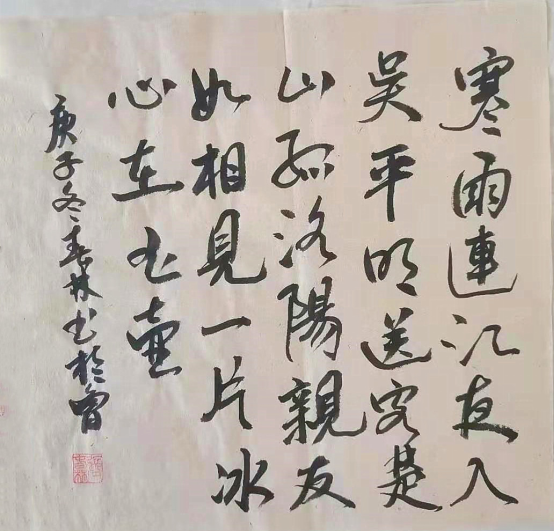 寒雨連江夜入
吳平明送客楚
山孤洛陽親友
如相見一片冰
心在玉壺
庚子冬春林书於